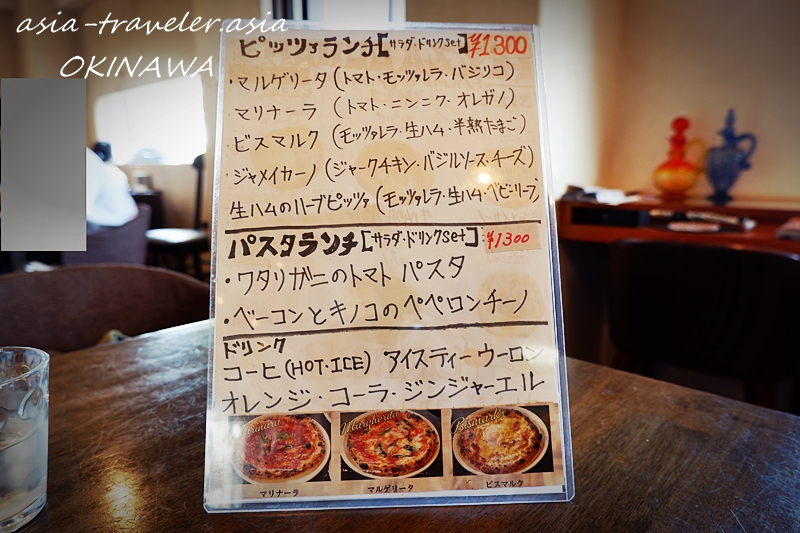 asia-traveler.asia
OKINAWA
ピッツァランチ[サラダ・ドリンクset]¥1300
・マルゲリータ(トマト・モッツァレラ・バジリコ)
・マリナーラ(トマト・ニンニク・オレガノ)
・ビスマルク(モッツァレラ・生ハム・半熟たまご)
・ジャメイカーノ(ジャークチキン・バジルソース・チーズ)
生ハムのハーブピッツァ(モッツァレラ・生ハム・ベビーリーフ)
パスタランチ[サラダ・ドリンクset]:¥1300
・ワタリガニのトマトパスタ
・ベーコンとキノコのペペロンチーノ
ドリンク
コーヒ(HOT・ICE) アイスティー ウーロン
オレンジ・コーラ・ジンジャーエル
Marinara Margherita Bismark
マリナーラ マルゲリータ ビスマルク